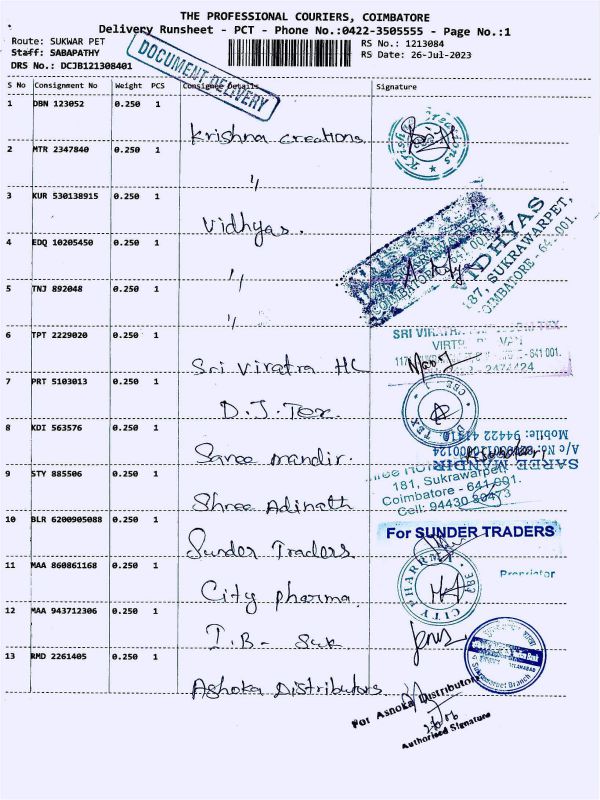 THE PROFESSIONAL COURIERS, COIMBATORE
Delivery Runsheet - PCT - Phone No.:0422-3505555 - Page No.:1
Route: SUKWAR PET
RS No.: 1213084
Staff: SABAPATHY
RS Date: 26-Jul-2023
DRS No.: DCJB121308401
DOCUMENT DELIVERY
S No Consignment No Weight PCS Consignee Details Signature
1 DBN 123052 0.250 1 Krishna creations
2 MTR 2347840 0.250 1 "
3 KUR 530138915 0.250 1 Vidhyas.
4 EDQ 10205450 0.250 1 "
5 TNJ 892048 0.250 1 "
6 TPT 2229020 0.250 1 Sri Viratra HC
7 PRT 5103013 0.250 1 D.J.Tex.
8 KDI 563576 0.250 1 Saree mandir.
9 STY 885506 0.250 1 Shree Adinath
10 BLR 6200905088 0.250 1 Sunder Traders
11 MAA 860861168 0.250 1 City pharma.
12 MAA 943712306 0.250 1 I.B- Suk
13 RMD 2261405 0.250 1 Ashoka Distributors
VIDHYAS
187, SUKRAWARPET,
COIMBATORE - 641 001.
SRI
641 001.
TEX
Mobile: 94422
SAREE MANDIR
181, Sukrawarpet
Coimbatore - 641 001.
Cell: 94430
For SUNDER TRADERS
Proprietor
CITY PHARMA
CBE
Branch
For Ashoka Distributors
Authorised Signature